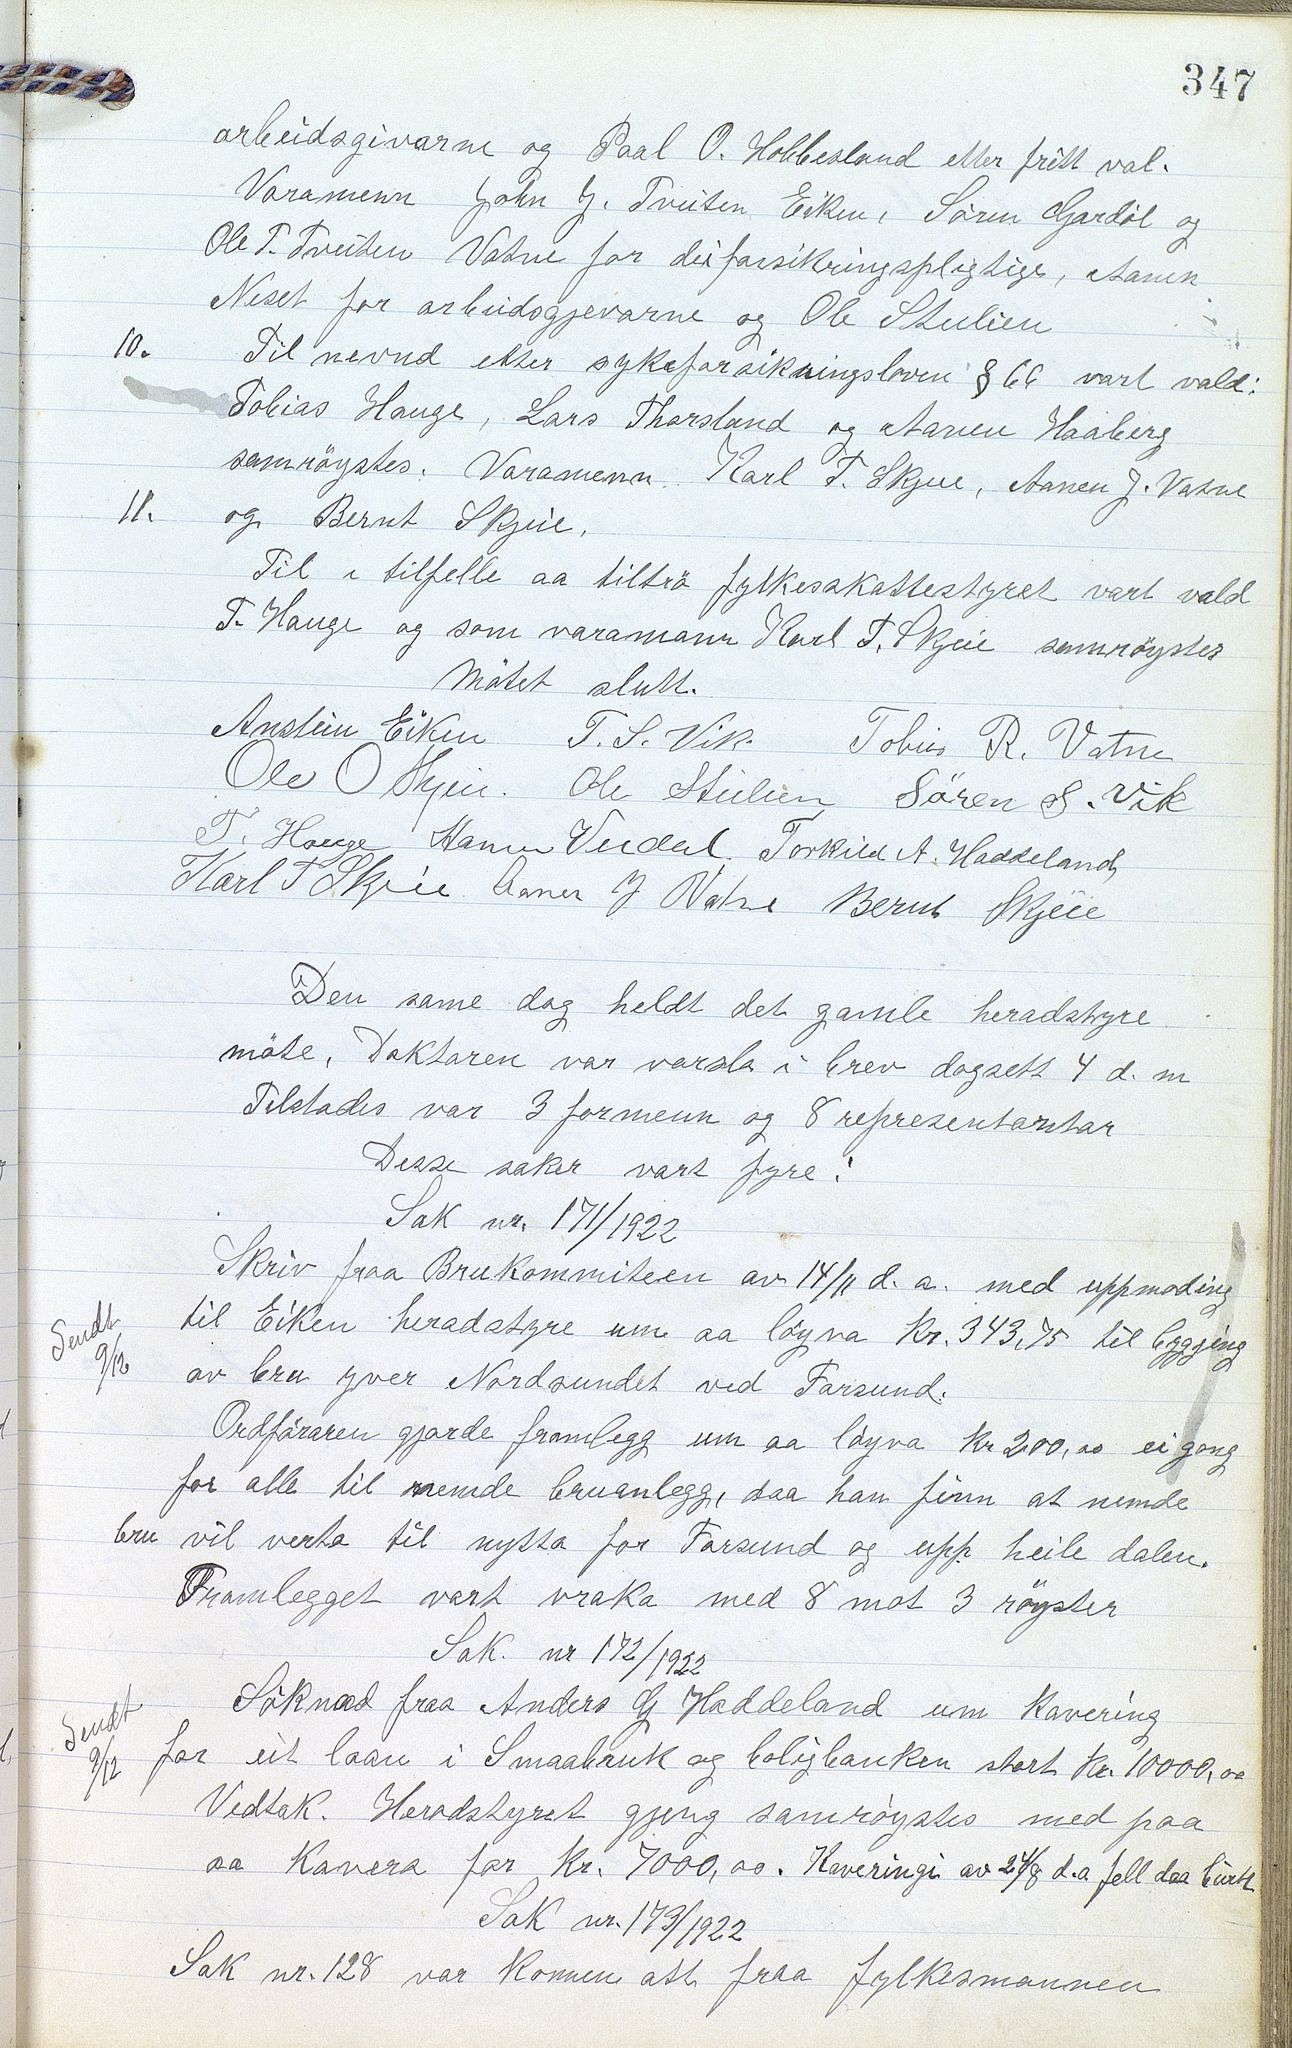 347
arbeidsgivarne og Paal O. Hobbesland etter fritt val.
Varamenn John J. Tveiten Eiken, Søren Gardøl og
Ole T. Tveiten Vatne for dei forsikringspligtige, Aanen
Neset for arbeidsgjevarne og Ole Stulien
10. Til nevnd etter sykeforsikringsloven § 66 vart vald:
Tobias Hauge, Lars Thorsland og Aanen Haaberg
samrøystes. Varamenn Karl T. Skjeie, Aanen J. Vatne
11. og Bernt Skjeie.
Til i tilfelle aa tiltrø fylkesskattestyret vart vald
T. Hauge og som varamann Karl T. Skjeie samrøystes
Møtet slutt.
Anstein Eiken T. S. Vik. Tobias R. Vatne
Ole O Skjeie. Ole Stulien Søren S. Vik
T. Hauge Aanen Verdal. Torkild A. Haddeland
Karl T Skjeie Aanen J Vatne Bernt Skjeie
Den same dag heldt det gamle heradstyre
møte. Doktaren var varsla i brev dagsett 4 d. m
Tilstades var 3 formenn og 8 representantar
Desse saker vart fyre:
Sak nr. 171/1922
Skriv fraa Brukommiteen av 14/11 d. a. med uppmoding
Sendt 9/12
til Eiken heradstyre um aa løyva Kr. 343,75 til bygging
av bru yver Nordsundet ved Farsund.
Ordføraren gjorde framlegg um aa løyva Kr 200,00 ei gong
for alle til nemde bruanlegg, daa han finn at nemde
bru vil verta til nytta for Farsund og upp heile dalen.
Framlegget vart vraka med 8 mot 3 røyster
Sak. nr 172/1922
Søknad fraa Anders G Haddeland um kavering
Sendt 9/12
for eit laan i Smaabruk og boligbanken stort Kr. 10000,00
Vedtak. Heradstyret gjeng samrøystes med paa
aa kavera for Kr. 7000,00. Kaveringi av 24/8 d.a fell daa burt
Sak nr. 173/1922
Sak nr. 128 var komen att fraa fylkesmannen